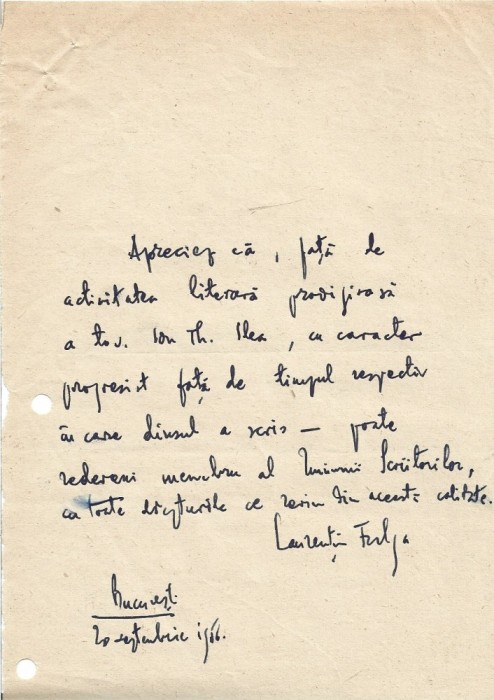 Apreciez că, față de
activitatea literară prodigioasă
a tov. Ion Th. Ilea, cu caracter
progresist față de timpul respectiv
în care dînsul a scris — poate
redeveni membru al Uniunii Scriitorilor,
cu toate drepturile ce revin din această calitate.
Laurențiu Fulga
București
20 septembrie 1966.